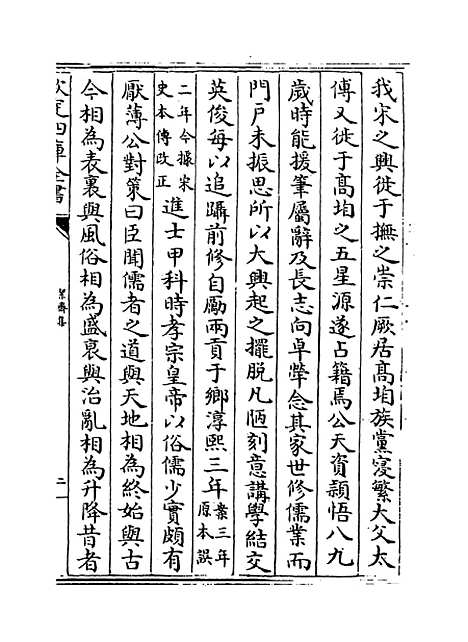 我宋之興徙于撫之崇仁厥居髙㘬族黨寖繁大父太
傅又徙于髙㘬之五星源遂占籍焉公天資頴悟八九
歲時能援筆屬辭及長志向卓犖念其家世修儒業而
門戸未振思所以大興起之擺脱凡陋刻意講學結交
英俊每以追躡前修自勵兩貢于鄉淳熙三年案三年原本誤
二年今據宋史本傳改正進士甲科時孝宗皇帝以俗儒少實頗有
厭薄公對策曰臣聞儒者之道與天地相為終始與古
今相為表裏與風俗相為盛衰與治亂相為升降昔者
欽定四庫全書
絜齋集
二